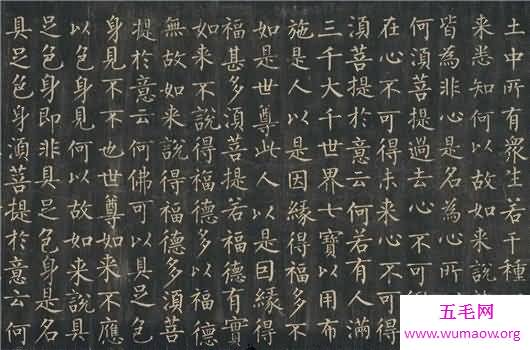 土中所有衆生若干種
来悉知何以故如来說
皆為非心是名為心所
何須菩提過去心不可
在心不可得未来心不可得
須菩提於意云何若有人滿
三千大千世界七寶以用布
施是人以是因緣得福多不
如是世尊此人以是因緣得
福甚多須菩提若福德有實
如来不說得福德多以福德
無故如来說得福德多須菩
提於意云何佛可以具足色
身見不不也世尊如来不應
以色身見何以故如来說具
足色身即非具足色身是名
具足色身須菩提於意云何
五毛网
www.wumaow.org